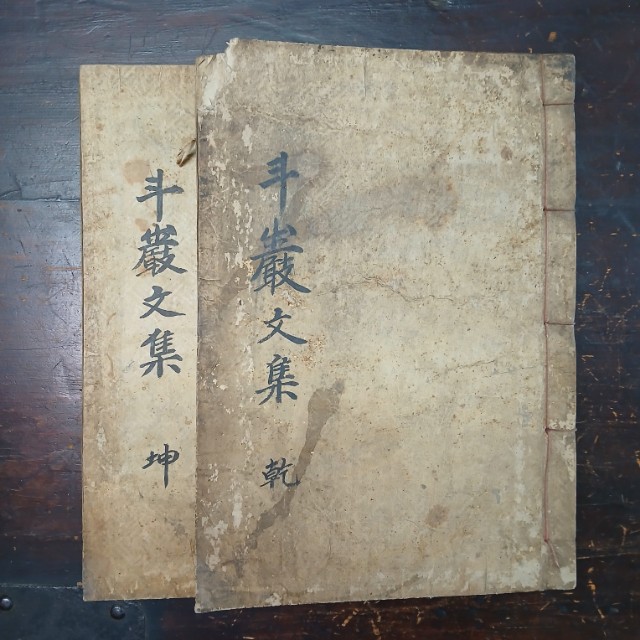 斗巖文集 乾
斗巖文集 坤